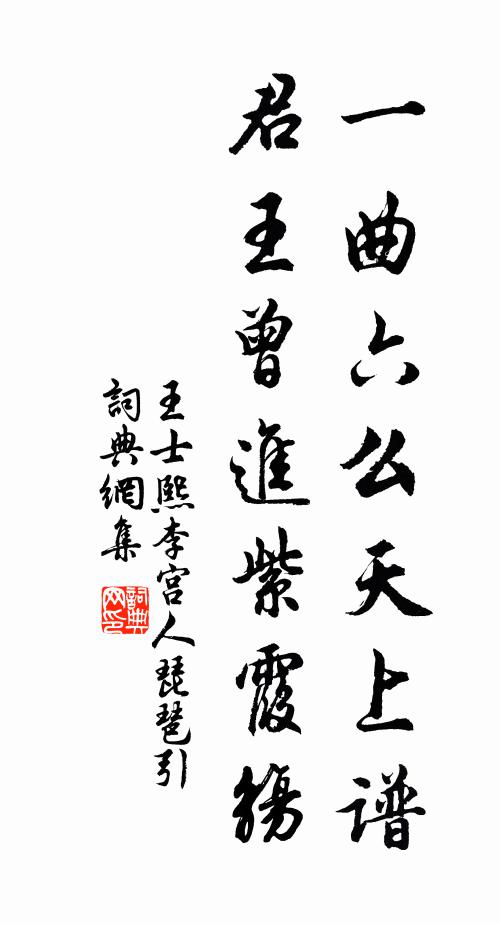 一曲六么天上谱
君王曾進紫霞觴
王士熙李宮人琵琶引
詞典網集
詞典网印